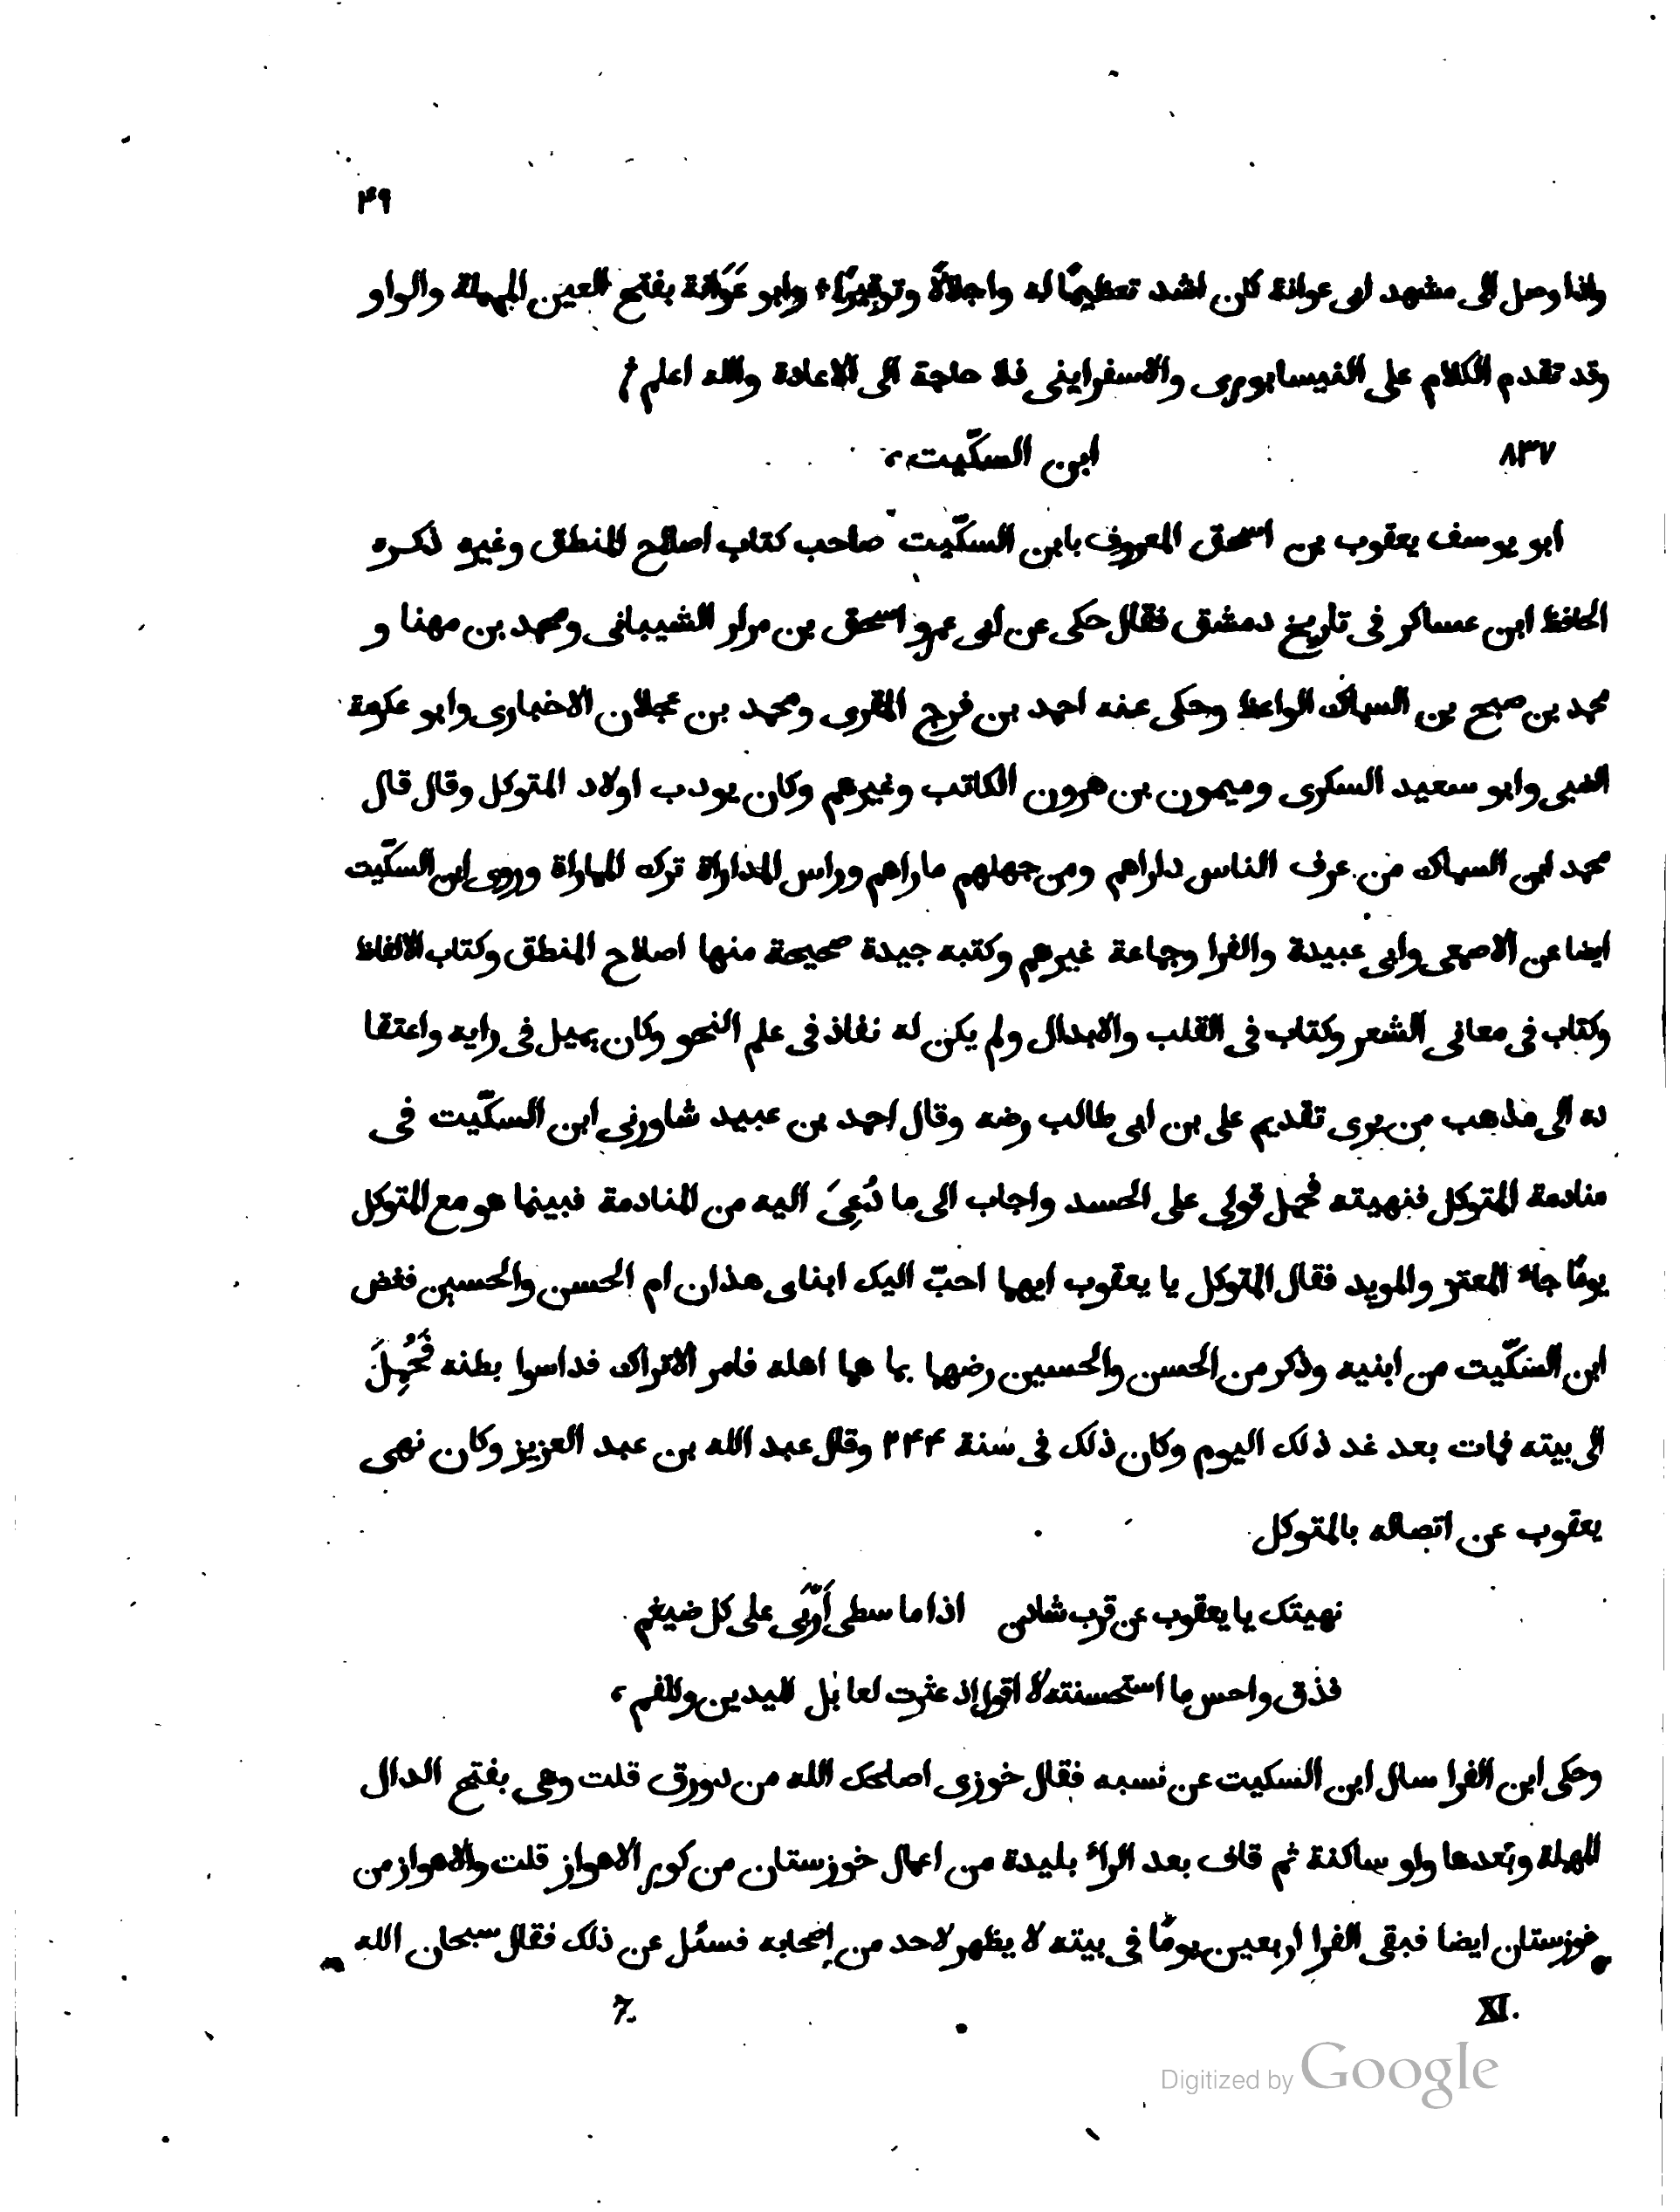 ۴۹
واذا وصل الى مشهد ابى عوانة كان اشد تعظيمًا له واجلالًا وتوقيرًا، وابو عَوَانة بفتح العين المهملة والواو
وقد تقدم الكلام على النيسابورى والاسفراينى فلا حاجة الى الاعادة والله اعلم
٨٣٧ ابن السكّيت،
ابو يوسف يعقوب بن اسحق المعروف بابن السكّيت صاحب كتاب اصلاح المنطق وغيره ذكره
الحافظ ابن عساكر فى تاريخ دمشق فقال حكى عن ابى عمرو اسحق بن مرار الشيبانى ومحمد بن مهنا و
محمد بن صبح بن السماك الواعظ وحكى عنه احمد بن فرج المقرى ومحمد بن عجلان الاخبارى وابو عكرمة
الضبى وابو سعيد السكرى وميمون بن هرون الكاتب وغيرهم وكان يودب اولاد المتوكل وقال قال
محمد ابن السماك من عرف الناس داراهم ومن جهلهم ماراهم وراس المداراة ترك المماراة وروى ابن السكّيت
ايضا عن الاصمعى وابى عبيدة والفرا وجماعة غيرهم وكتبه جيدة صحيحة منها اصلاح المنطق وكتاب الالفاظ
وكتاب فى معانى الشعر وكتاب فى القلب والابدال ولم يكن له نفاذ فى علم النحو وكان يميل فى رايه واعتقا
ده الى مذهب من يرى تقديم على بن ابى طالب رضه وقال احمد بن عبيد شاورنى ابن السكّيت فى
منادمة المتوكل فنهيته فحمل قولى على الحسد واجاب الى ما دُعِىَ اليه من المنادمة فبينما هو مع المتوكل
يومًا جاء المعتز والمويد فقال المتوكل يا يعقوب ايهما احبّ اليك ابناى هذان ام الحسن والحسين فغض
ابن السكّيت من ابنيه وذكر من الحسن والحسين رضهما بما هما اهله فامر الاتراك فداسوا بطنه فَحُمِلَ
الى بيته فمات بعد غد ذلك اليوم وكان ذلك فى سنة ۲۴۴ وقال عبد الله بن عبد العزيز وكان نهى
يعقوب عن اتصاله بالمتوكل
نهيتك يا يعقوب عن قرب شادن اذا ما سطى أربى على كل ضيغم
فذق واحس ما استحسنته لا اقول اذ عثرت لعا بل لليدين وللفم،
وحكى ابن الفرا سال ابن السكيت عن نسبه فقال خوزى اصلحك الله من دورق قلت وهى بفتح الدال
المهملة وبعدها واو ساكنة ثم قاف بعد الراء بليدة من اعمال خوزستان من كور الاهواز قلت والاهواز من
خوزستان ايضا فبقى الفرا اربعين يومًا فى بيته لا يظهر لاحد من اصحابه فسئل عن ذلك فقال سبحان الله
XI. 7.
Digitized by Google